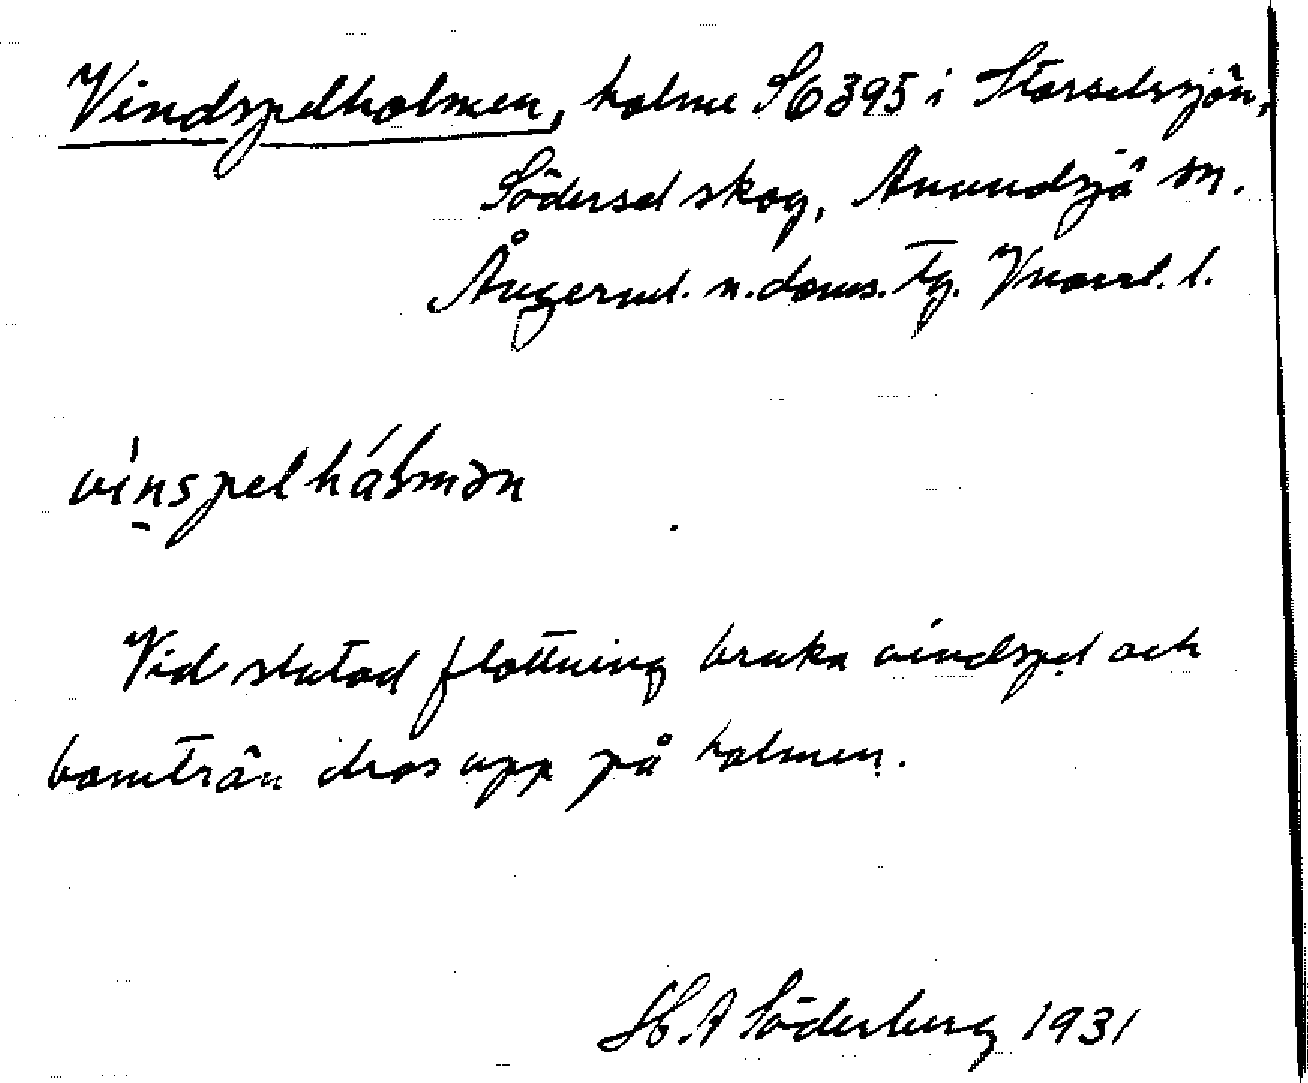 Vindspelholmen, holme S6395 i Storselsjön,
Södersel skog, Anundsjö sn.
Ångerml. n. doms. tg. Vnorrl. l.
vínspelhál̵mən
Vid slutad flottning bruka vindspel och
bomträn dras upp på holmen.
H.A Söderberg 1931